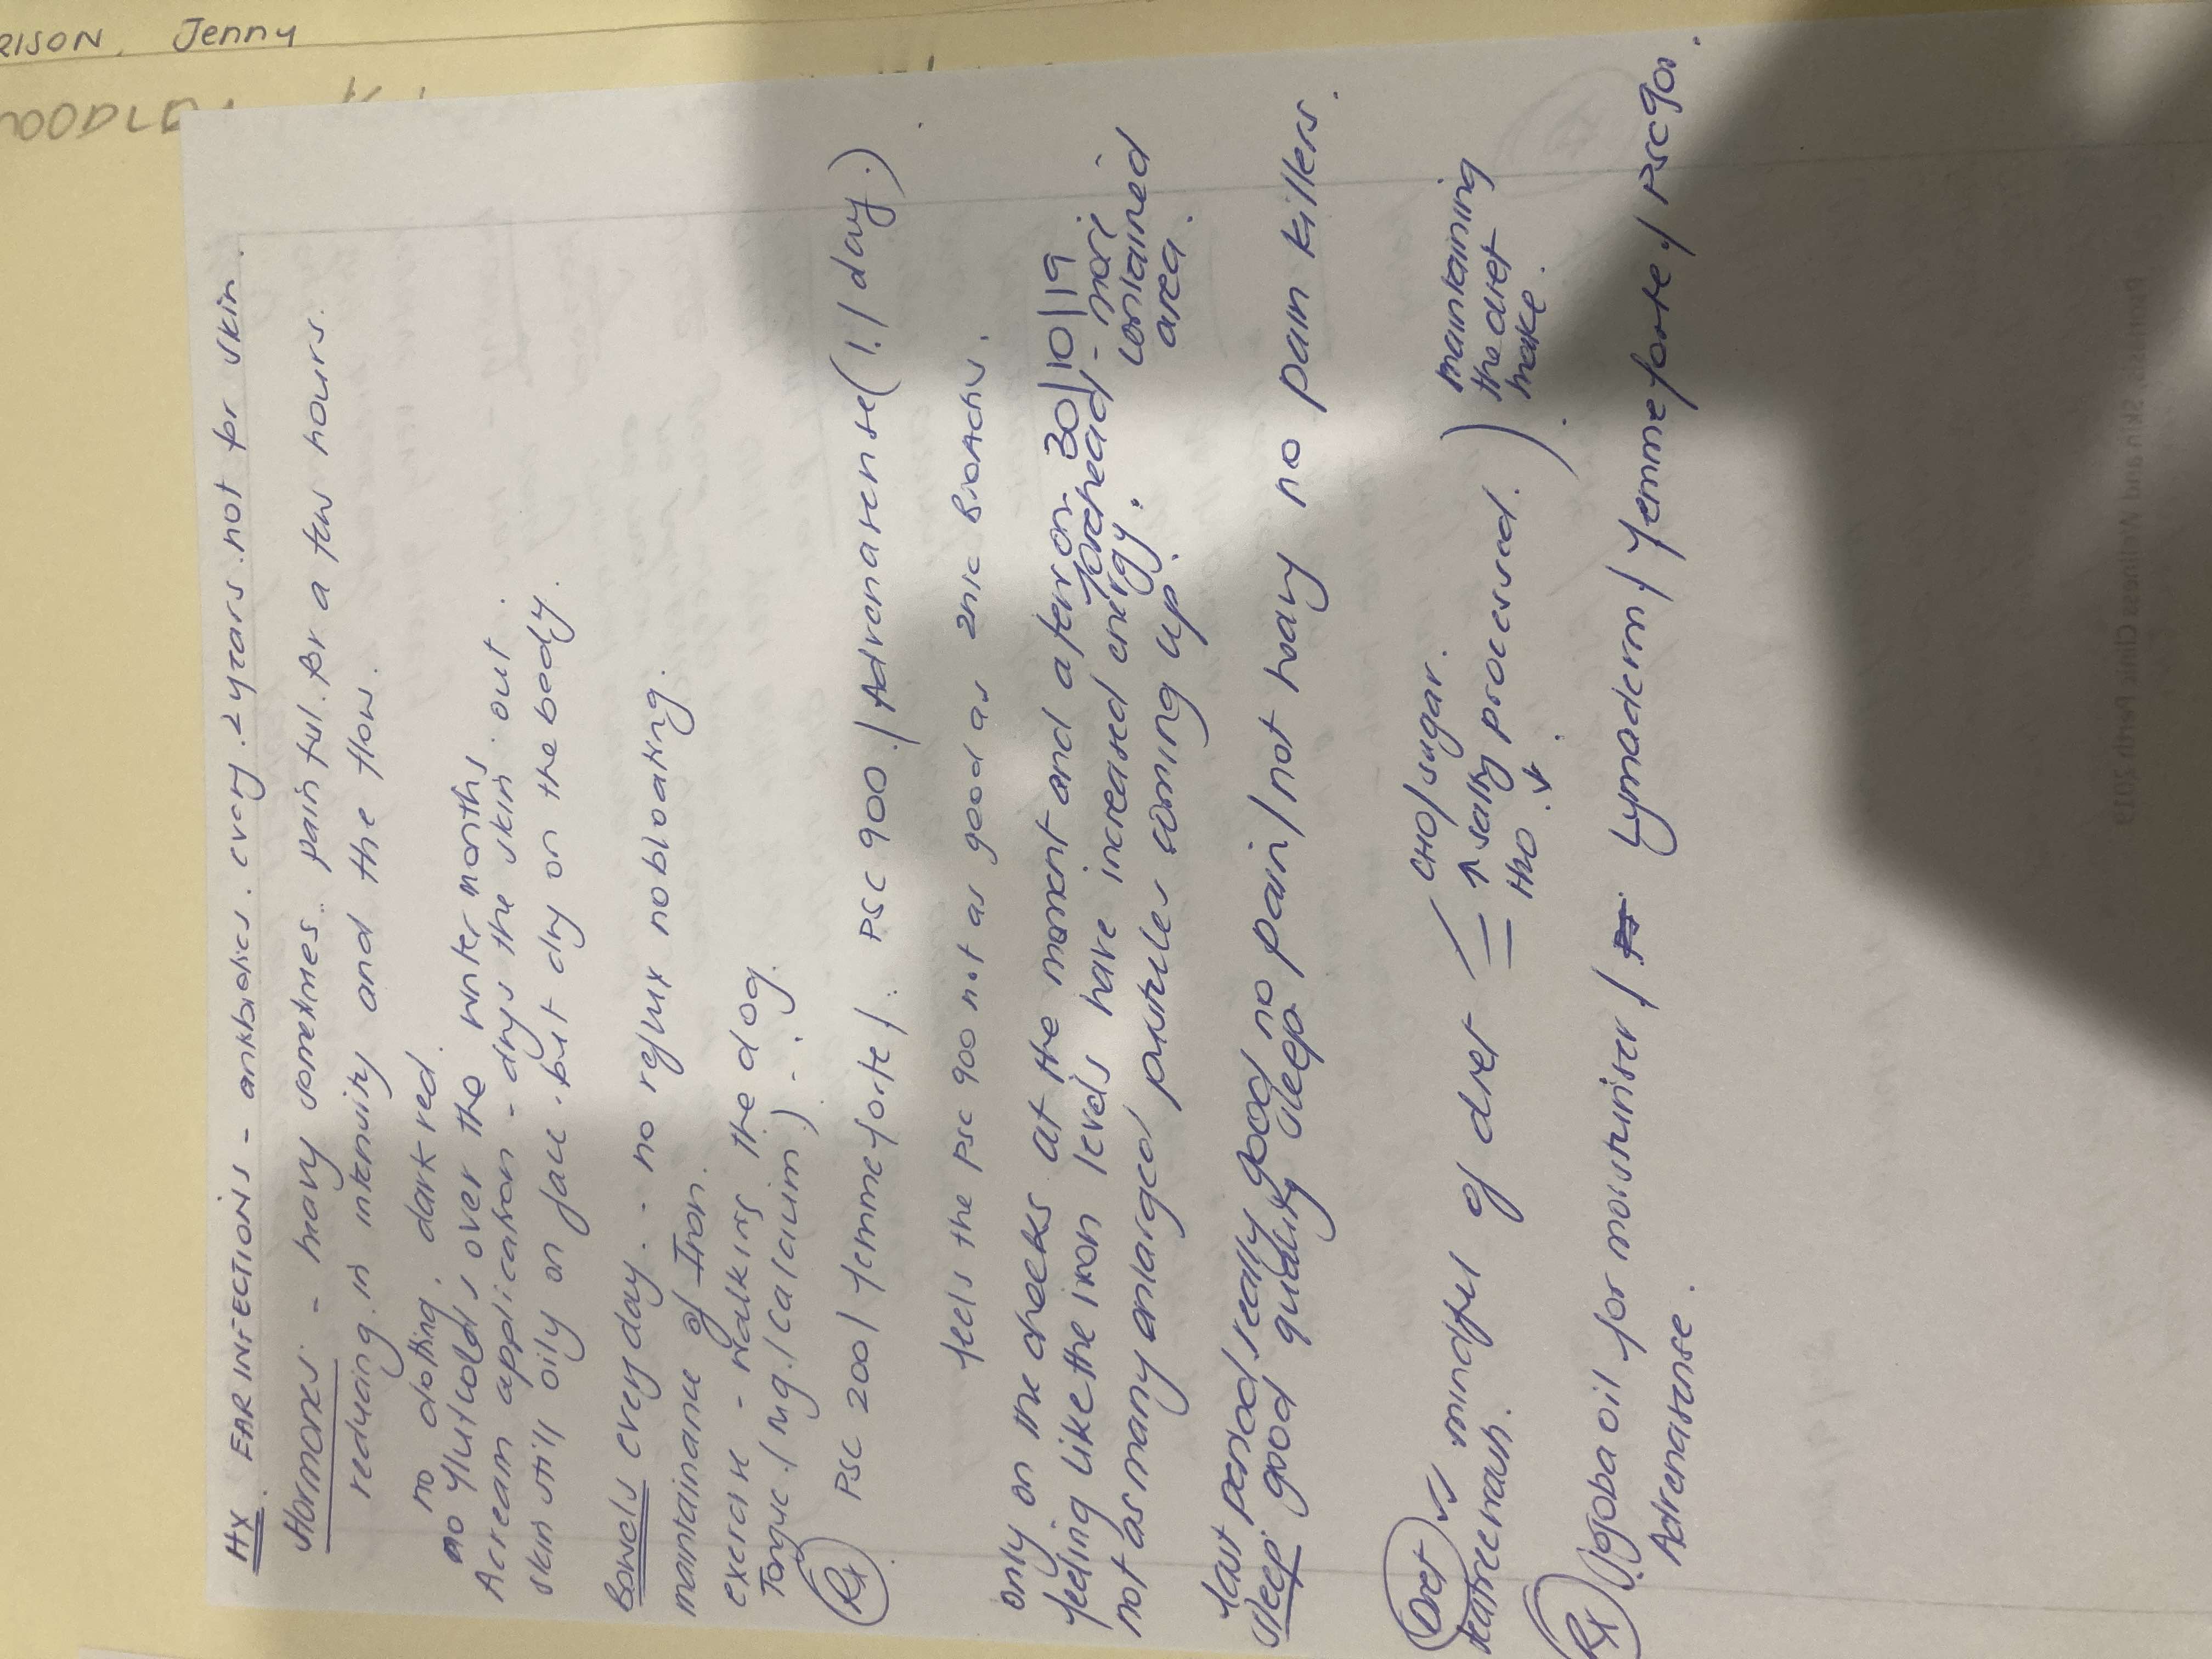 RISON, Jenny
Hx EAR INFECTIONS - antibiotics. every 2 years. not for skin.
Hormones - heavy sometimes. painful. for a few hours.
reducing in intensity and the flow.
no clotting, dark red.
no flu/colds over the winter months.
A cream application - drys the skin out.
skin still oily on face. but dry on the body.
Bowels every day. - no reflux no bloating.
maintainance of Iron.
exercise - walking the dog.
Tongue / Mg / Calcium) . .
Rx PSC 200 / femmeforte / PSC 900 / Adrenasense (1 / day.)
feels the PSC 900 not as good as
only on the cheeks at the moment and a few on forehead - more contained area.
30/10/19
feeling like the iron levels have increased energy.
not as many enlarged pustules coming up.
last period really good no pain / not heavy no pain killers.
sleep. good quality sleep.
Diet is mindful of diet
CHO / sugar.
↑ salty processed.
H2O ↓ .
) maintaining the diet
teatree wash.
Rx Jojoba oil for moisturiser / Lymaderm / femmeforte / PSC 900.
Adrenasense.
Skin and Wellness Clinic Perth 2019